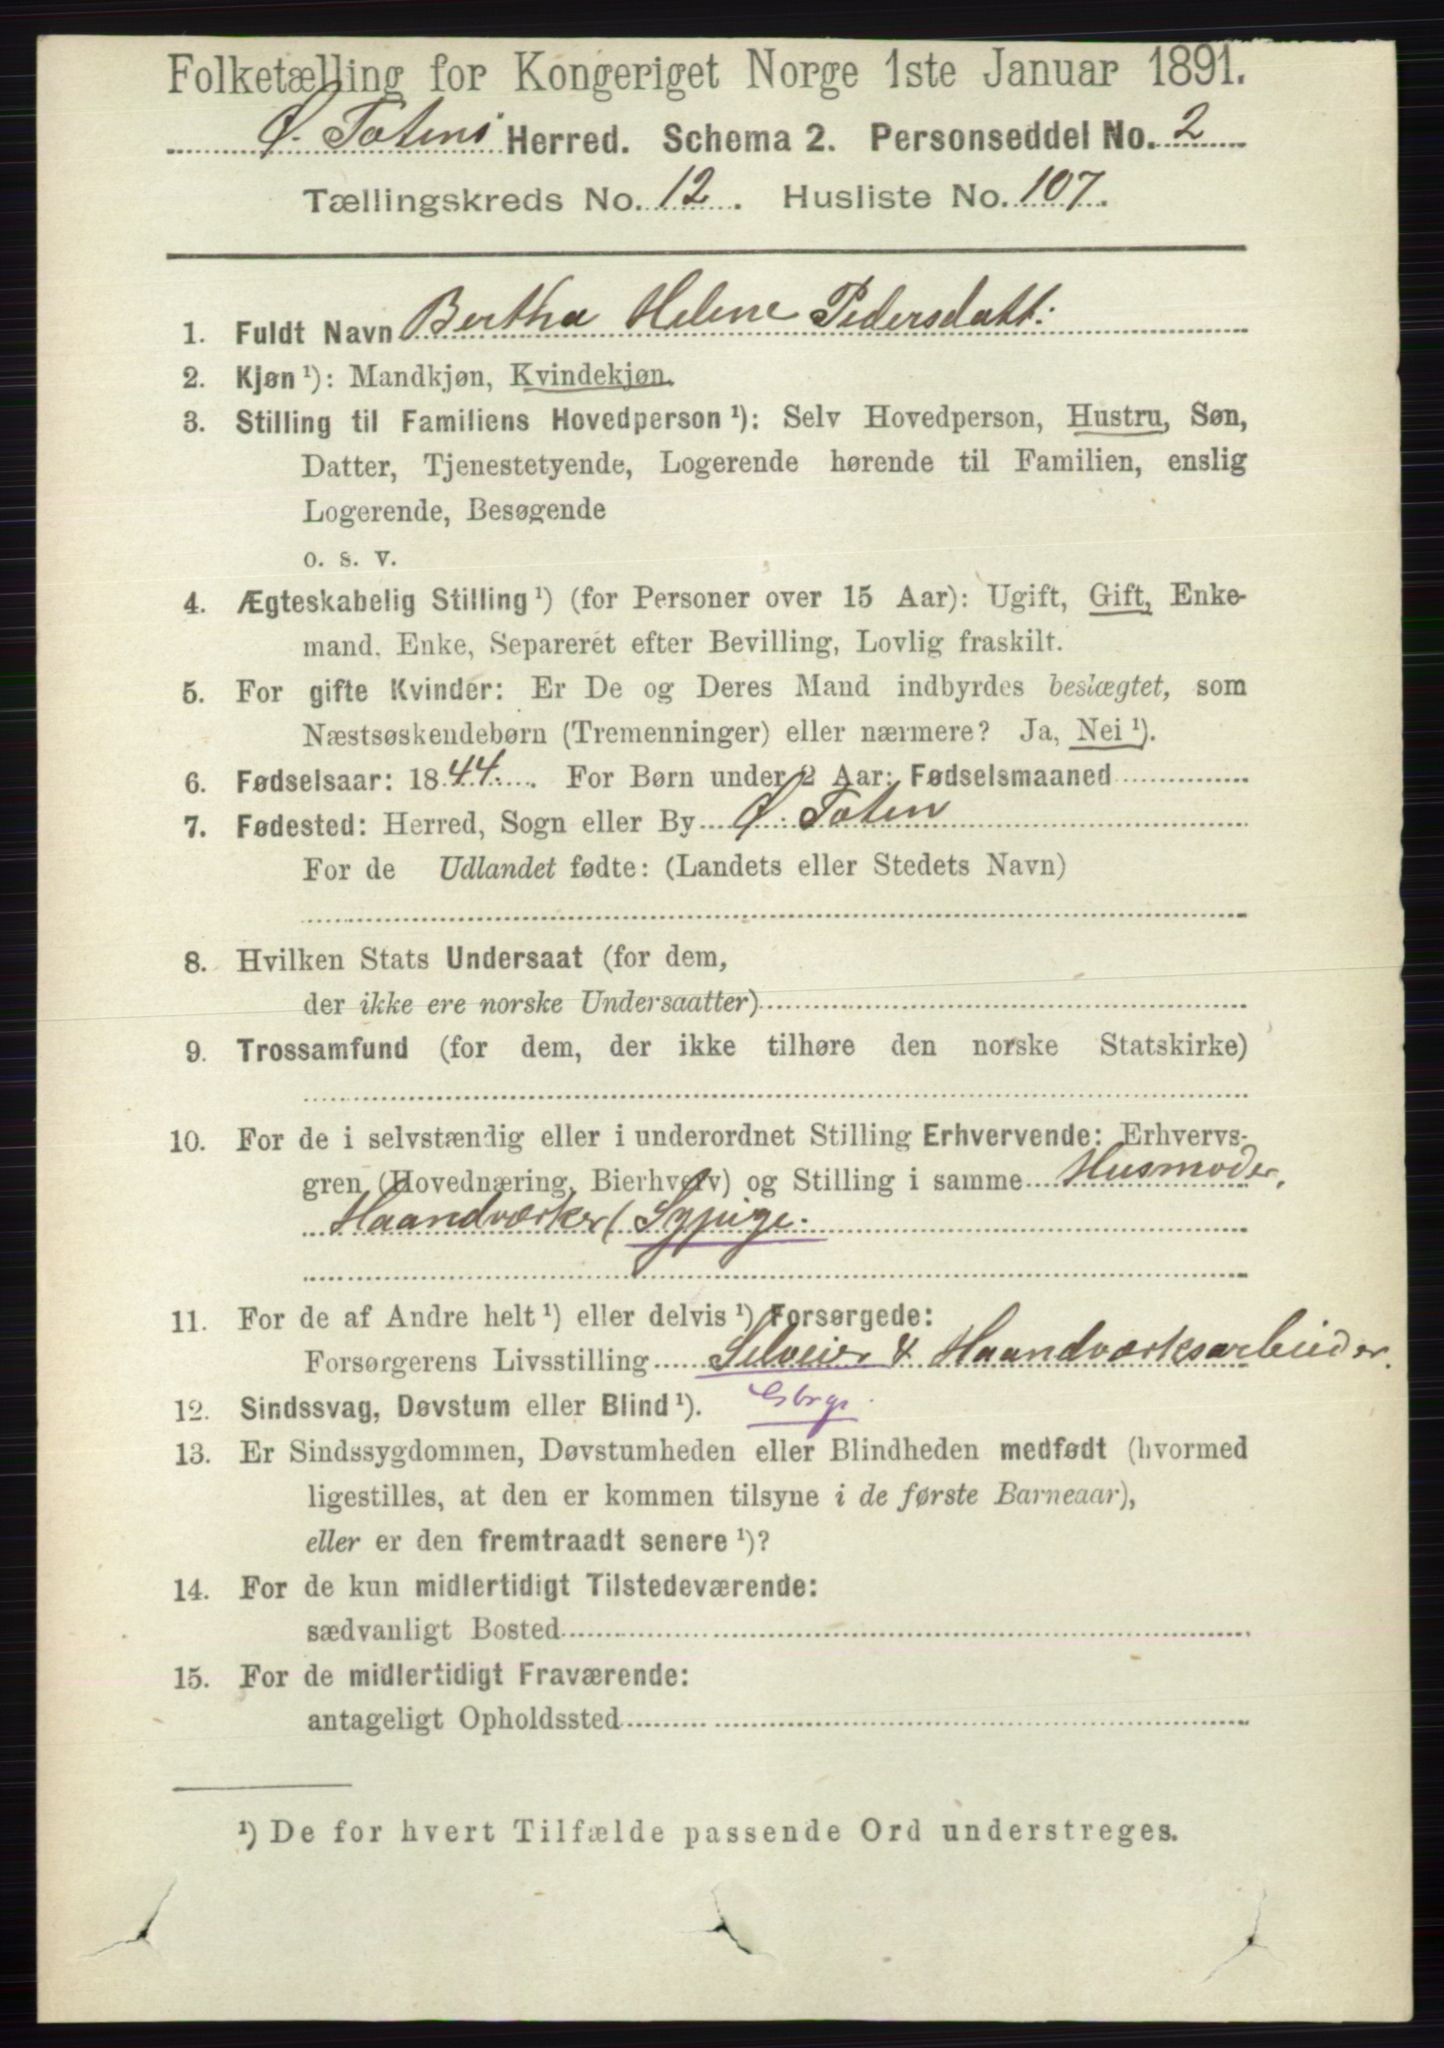 Folketælling for Kongeriget Norge 1ste Januar 1891.
Ø. Totens Herred. Schema 2. Personseddel No. 2
Tællingskreds No. 12. Husliste No. 107.
1. Fuldt Navn Bertha Helene Pedersdatt:
2. Kjøn ¹): Mandkjøn, Kvindekjøn.
3. Stilling til Familiens Hovedperson ¹): Selv Hovedperson, Hustru, Søn,
Datter, Tjenestetyende, Logerende hørende til Familien, enslig
Logerende, Besøgende
o. s. v.
4. Ægteskabelig Stilling ¹) (for Personer over 15 Aar): Ugift, Gift, Enke-
mand, Enke, Separeret efter Bevilling, Lovlig fraskilt.
5. For gifte Kvinder: Er De og Deres Mand indbyrdes beslægtet, som
Næstsøskendebørn (Tremenninger) eller nærmere? Ja, Nei ¹).
6. Fødselsaar: 1844. For Børn under 2 Aar: Fødselsmaaned
7. Fødested: Herred, Sogn eller By Ø. Toten
For de Udlandet fødte: (Landets eller Stedets Navn)
8. Hvilken Stats Undersaat (for dem,
der ikke ere norske Undersaatter)
9. Trossamfund (for dem, der ikke tilhøre den norske Statskirke)
10. For de i selvstændig eller i underordnet Stilling Erhvervende: Erhvervs-
gren (Hovednæring, Bierhverv) og Stilling i samme Husmoder,
Haandværker ( Sypige.
11. For de af Andre helt ¹) eller delvis ¹) Forsørgede:
Forsørgerens Livsstilling Selveier & Haandværksarbeider.
12. Sindssvag, Døvstum eller Blind ¹).
13. Er Sindssygdommen, Døvstumheden eller Blindheden medfødt (hvormed
ligestilles, at den er kommen tilsyne i de første Barneaar),
eller er den fremtraadt senere ¹)?
14. For de kun midlertidigt Tilstedeværende:
sædvanligt Bosted
15. For de midlertidigt Fraværende:
antageligt Opholdssted
¹) De for hvert Tilfælde passende Ord understreges.